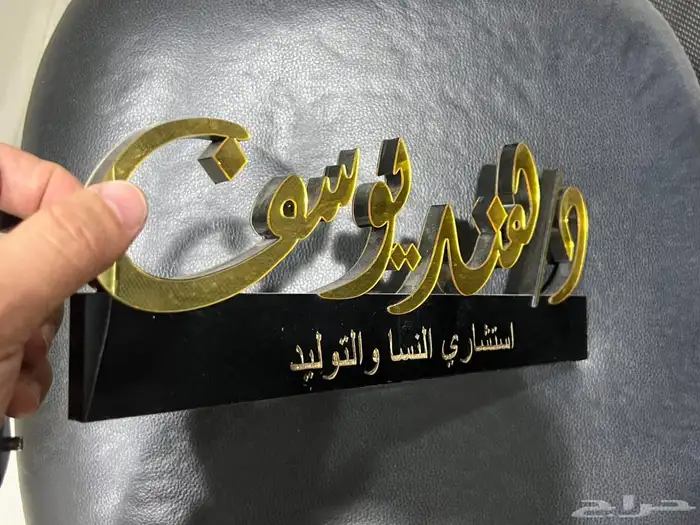 د/هند يوسف
استشاري النسا والتوليد
حراج